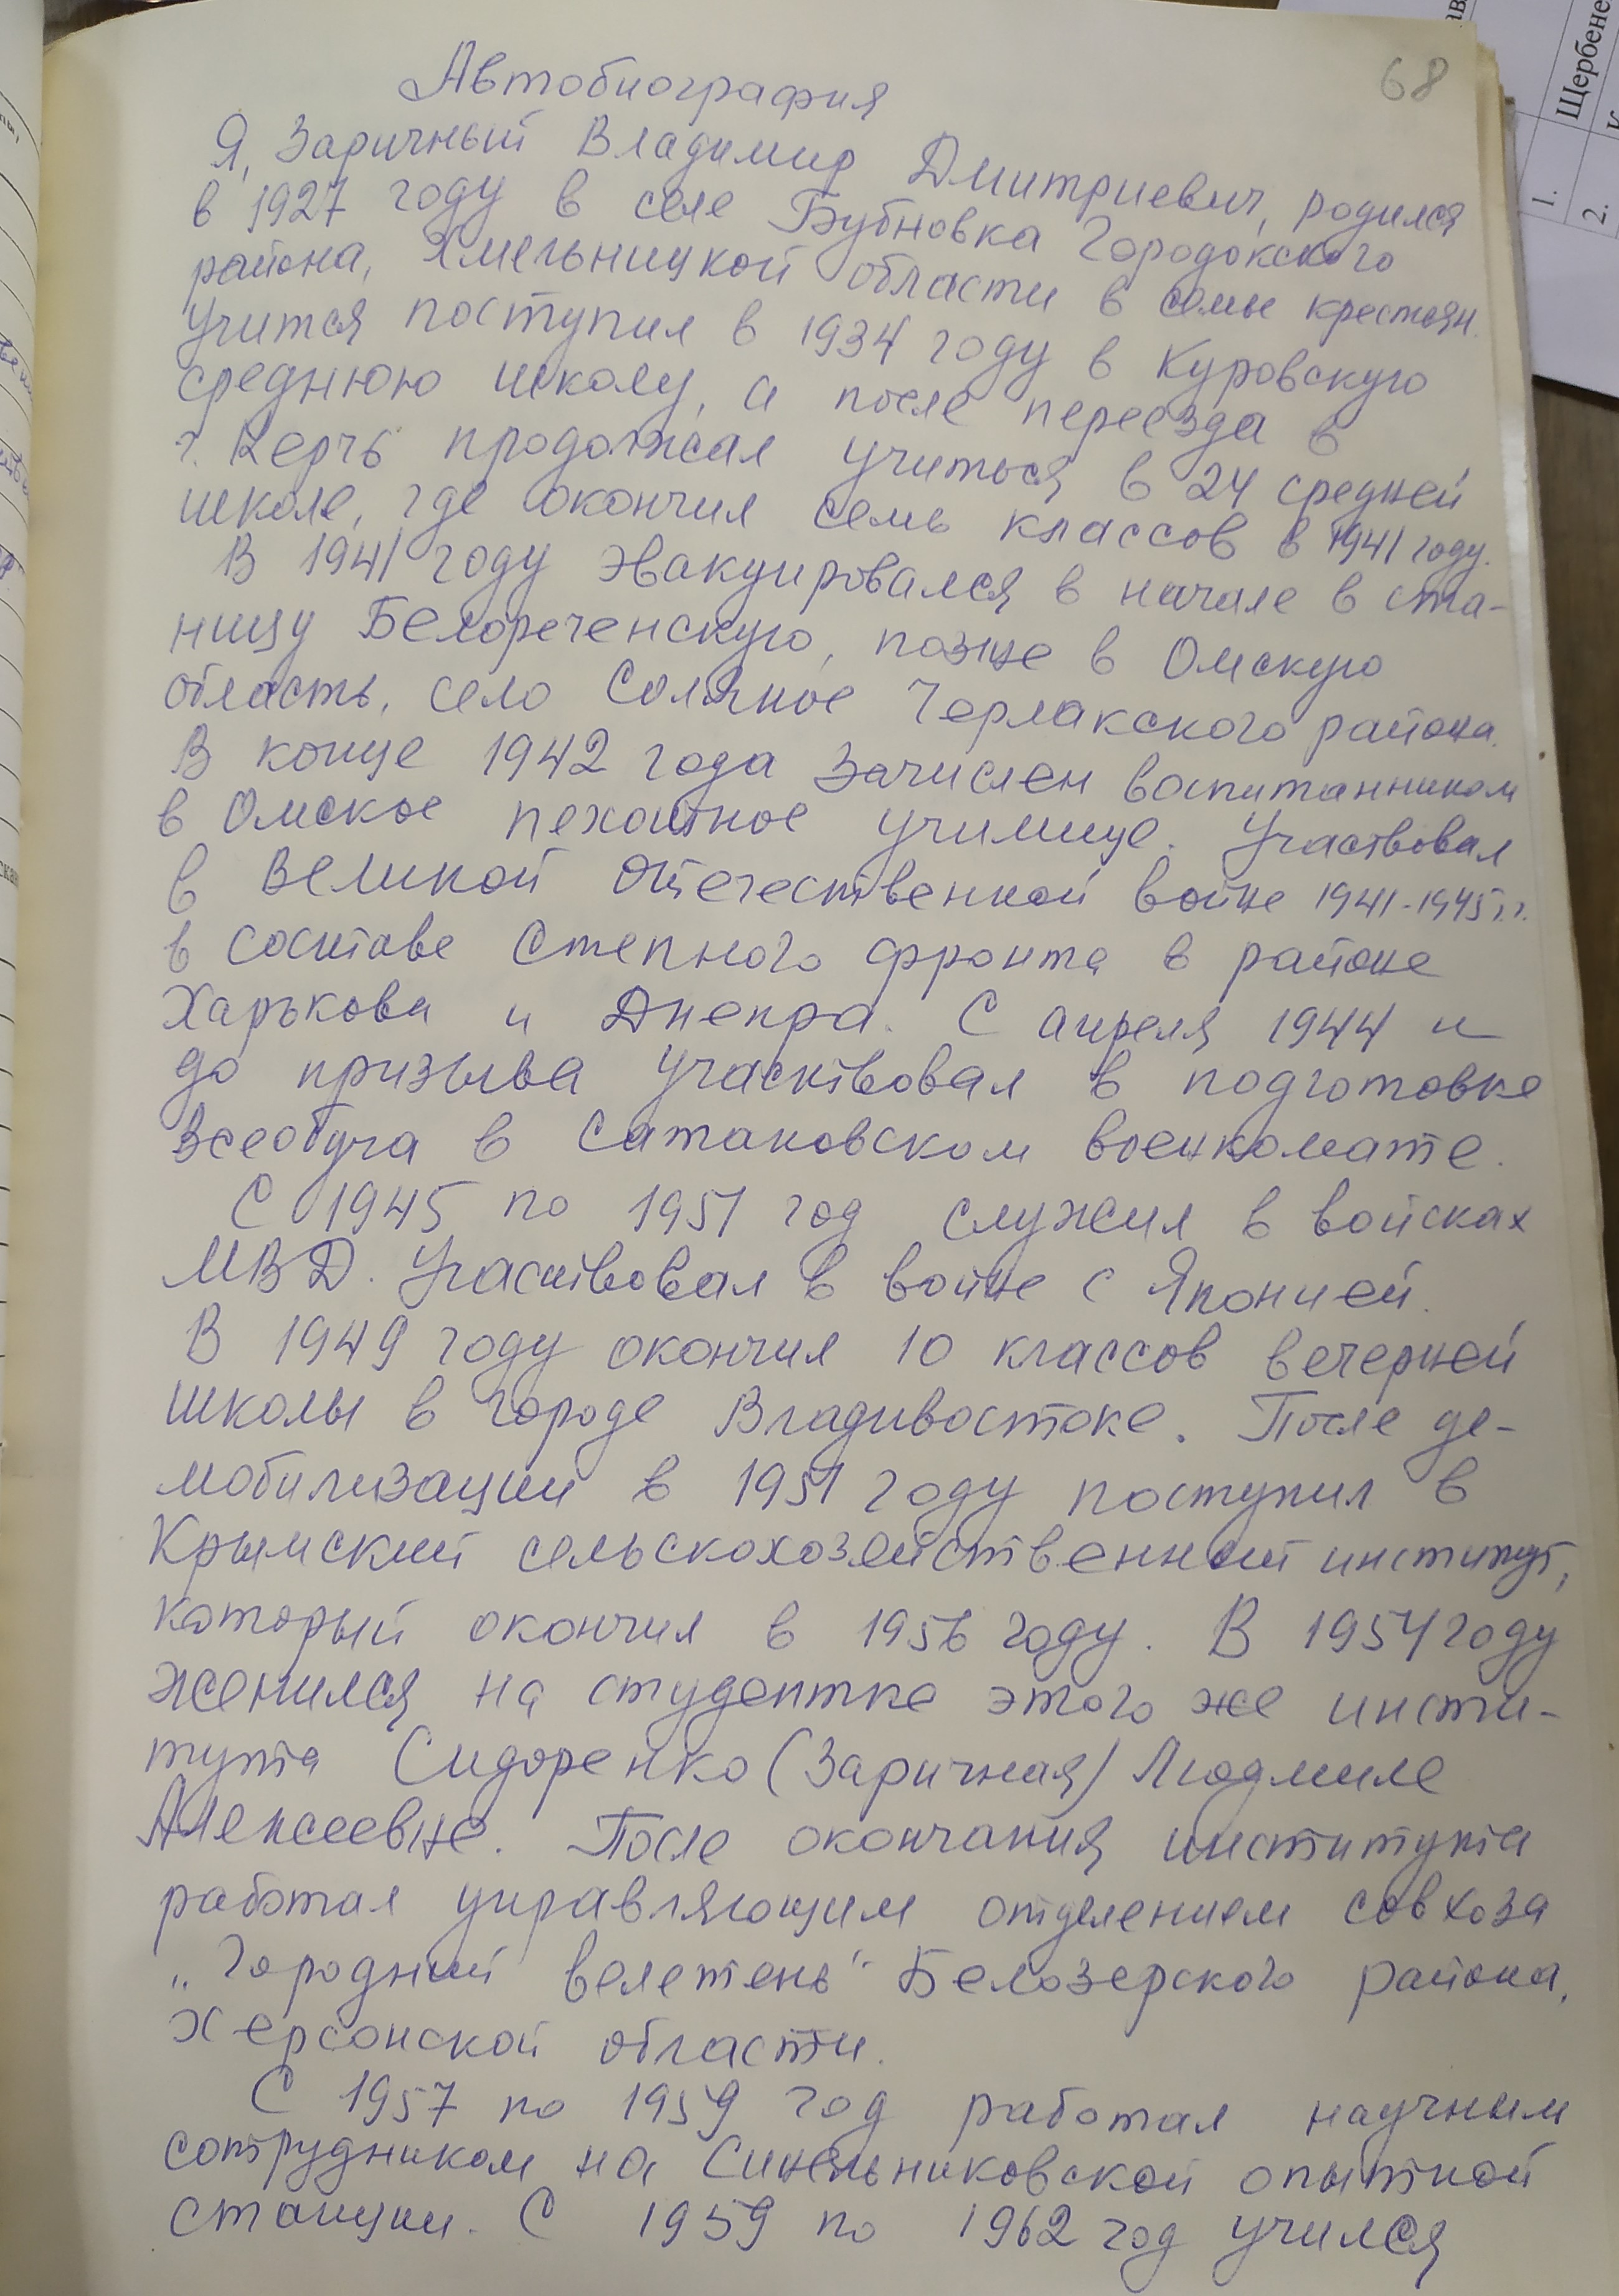 68
Автобиография
Я, Заричный Владимир Дмитриевич, родился
в 1927 году в селе Бубновка Городокского
района, Хмельницкой области в семье крестьян.
Учится поступил в 1934 году в Куровскую
среднюю школу, а после переезда в
г. Керчь продолжал учиться в 24 средней
школе, где окончил семь классов в 1941 году.
В 1941 году эвакуировался в начале в ста-
ницу Белореченскую, позже в Омскую
область, село Соляное Черлакского района.
В конце 1942 года зачислен воспитанником
в Омское пехотное училище. Участвовал
в Великой Отечественной войне 1941-1945 г.г.
в составе Степного фронта в районе
Харькова и Днепра. С апреля 1944 и
до призыва участвовал в подготовке
всеобуча в Сатановском военкомате.
С 1945 по 1951 год служил в войсках
МВД. Участвовал в войне с Японией.
В 1949 году окончил 10 классов вечерней
школы в городе Владивостоке. После де-
мобилизации в 1951 году поступил в
Крымский сельскохозяйственный институт,
который окончил в 1956 году. В 1954 году
женился на студентке этого же инсти-
тута Сидоренко (Заричная) Людмиле
Алексеевне. После окончания института
работал управляющим отделением совхоза
„Городний велетень" Белозерского района,
Херсонской области.
С 1957 по 1959 год работал научным
сотрудником на Синельниковской опытной
станции. С 1959 по 1962 год учился
1.
2.
Щербене